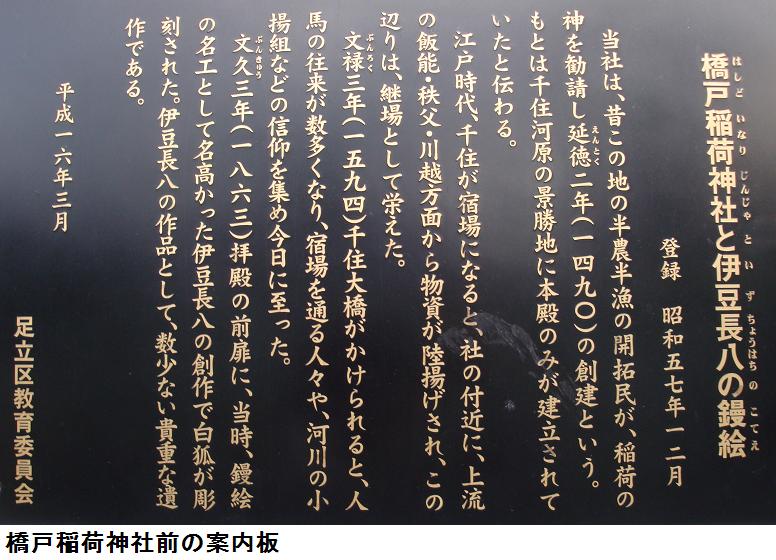 橋戸稲荷神社と伊豆長八の鏝絵
はしど いなり じんじゃ と いず ちょうはち の こてえ
登録 昭和五七年一二月
当社は、昔この地の半農半漁の開拓民が、稲荷の
神を勧請し延徳二年(一四九〇)の創建という。
えんとく
もとは千住河原の景勝地に本殿のみが建立されて
いたと伝わる。
江戸時代、千住が宿場になると、社の付近に、上流
の飯能・秩父・川越方面から物資が陸揚げされ、この
辺りは、継場として栄えた。
文禄三年(一五九四)千住大橋がかけられると、人
ぶんろく
馬の往来が数多くなり、宿場を通る人々や、河川の小
揚組などの信仰を集め今日に至った。
文久三年(一八六三)拝殿の前扉に、当時、鏝絵
ぶんきゅう
の名工として名高かった伊豆長八の創作で白狐が彫
刻された。伊豆長八の作品として、数少ない貴重な遺
作である。
平成一六年三月
足立区教育委員会
橋戸稲荷神社前の案内板